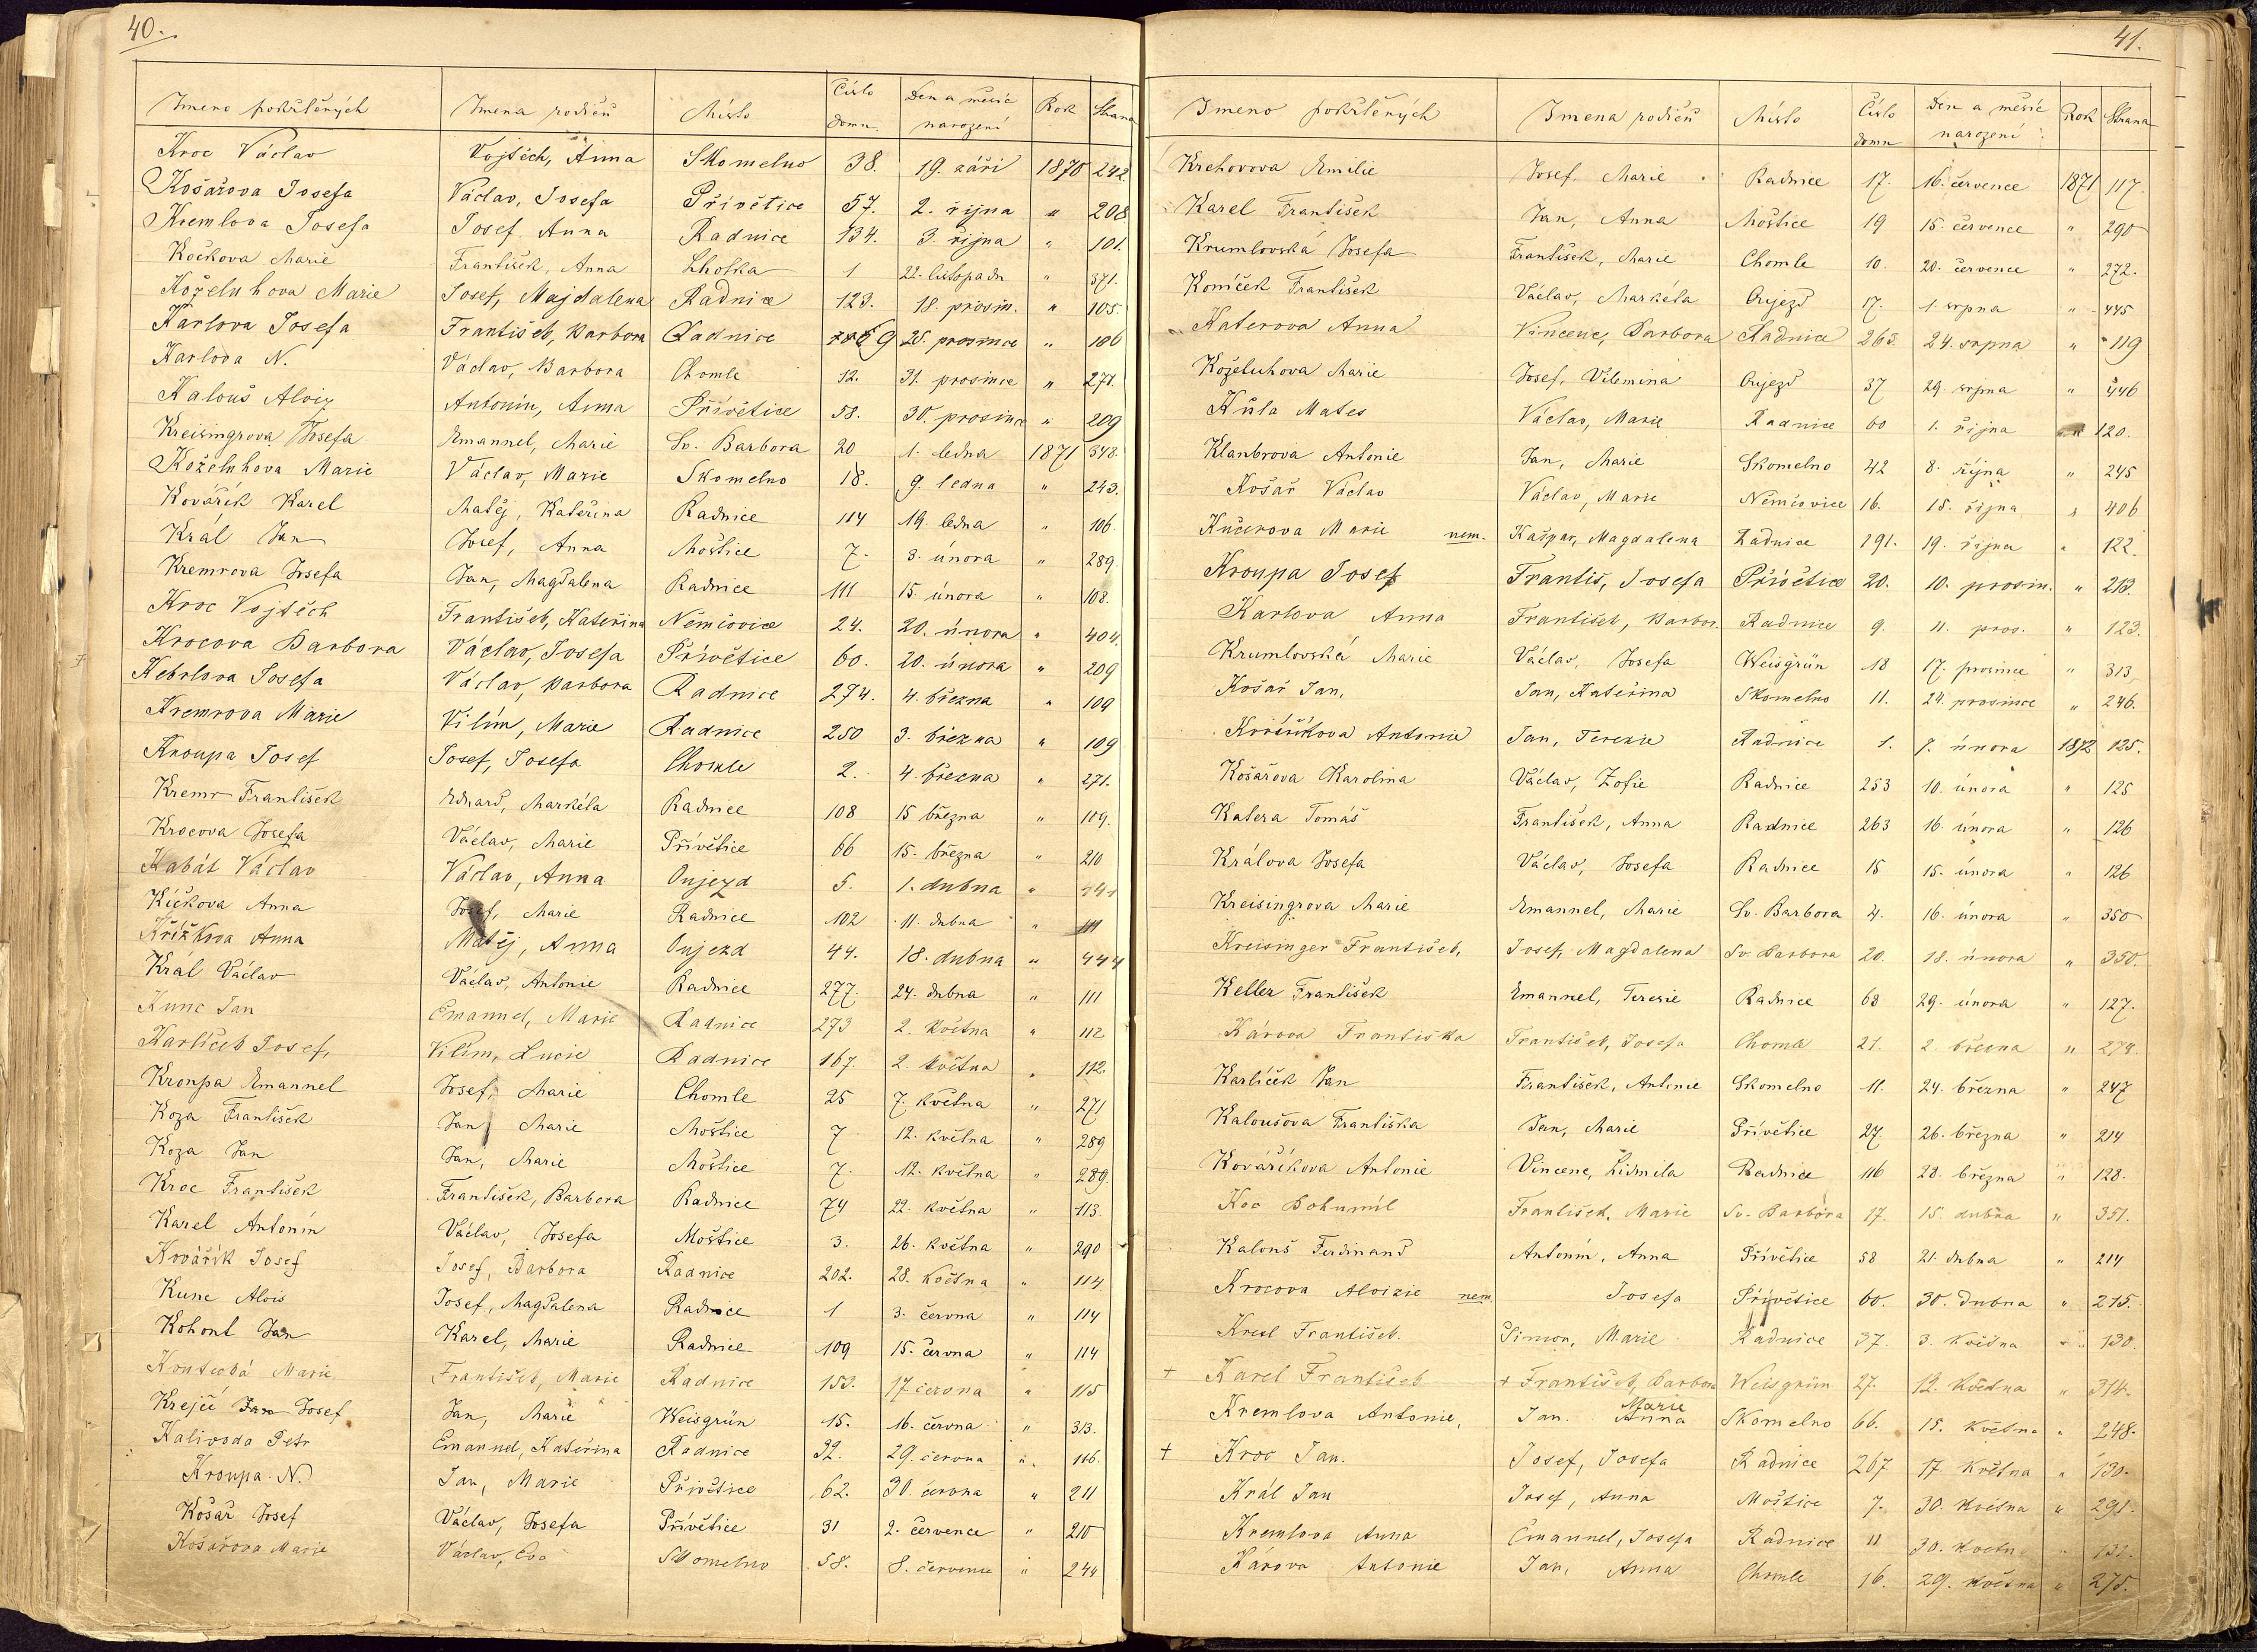 40.
Jmeno pokřtěných Jmena rodičů Místo Číslo domu Den a měsíc narození Rok Strana
Kroc Václav Vojtěch, Anna Skomelno 38. 19. září 1870 242.
Košařova Josefa Václav, Josefa Přívětice 57. 2. října " 208
Kremlova Josefa Josef Anna Radnice 134. 3. října " 101.
Kočkova Marie František, Anna Lhotka 1 22. listopadu " 371.
Koželuhova Marie Josef, Majdalena Radnice 123. 18. prosin. " 105.
Karlova Josefa František, Barbora Radnice 9 25. prosince " 106
Karlova N. Václav, Barbora Chomle 12. 31. prosince " 271.
Kalouš Aloiz Antonín, Anna Přívětice 58. 30. prosince " 209
Kreisingrova Josefa Emanuel, Marie Sv. Barbora 20 1. ledna 1871 348.
Koželuhova Marie Václav, Marie Skomelno 18. 9. ledna " 243.
Kovářík Karel Matěj, Kateřina Radnice 114 19. ledna " 106
Král Jan Josef, Anna Moštice 7. 8. února " 289.
Kremrova Josefa Jan, Magdalena Radnice 111 15. února " 108.
Kroc Vojtěch František, Kateřina Němčovice 24. 20. února " 404.
Krocova Barbora Václav, Josefa Přívětice 60. 20. února " 209
Kebrlova Josefa Václav, Barbora Radnice 274. 4. března " 109
Kremrova Marie Vilím, Marie Radnice 250 3. března " 109
Kroupa Josef Josef, Josefa Chomle 2. 4. března " 271.
Kremr František Eduard, Markéta Radnice 108 15 března " 109.
Krocova Josefa Václav, Marie Přívětice 66 15. března " 210
Kabát Václav Václav, Anna Oujezd 5. 1. dubna "
Kíčkova Anna Josef, Marie Radnice 102 11. dubna " 111
Křížkova Anna Matěj, Anna Oujezd 44. 18. dubna " 444
Král Václav Václav, Antonie Radnice 277. 24. dubna " 111
Kunc Jan Emanuel, Marie Radnice 273 2. května " 112
Karlíček Josef, Vilím, Lucie Radnice 167. 2. května " 112.
Kroupa Emanuel Josef, Marie Chomle 25 7. května " 271
Koza František Jan, Marie Moštice 7 12. května " 289
Koza Jan Jan, Marie Moštice 7. 12. května " 289.
Kroc František František, Barbora Radnice 74 22. května " 113.
Karel Antonín Václav, Josefa Moštice 3. 26. května " 290
Kovářík Josef Josef, Barbora Radnice 202. 28. května " 114
Kunc Alois Josef, Magdalena Radnice 1 3. června " 114
Kohout Jan Karel, Marie Radnice 109 15. června " 114
Marie František, Marie Radnice 153. 17 června " 115
Krejčí Jan Josef Jan, Marie Weisgrün 15. 16. června " 313.
Kalivoda Petr Emanuel, Kateřina Radnice 32. 29. června " 116.
Kroupa N. Jan, Marie Přívětice 62. 30. června " 211
Košař Josef Václav, Josefa Přívětice 31 2. července " 210
Košařova Marie Václav, Eva Skomelno 58. 8. července " 244
41.
Jmeno pokřtěných Jmena rodičů Místo Číslo domu Den a měsíc narození Rok Strana
Krehovova Emilie Josef, Marie Radnice 17. 16. července 1871 117.
Karel František Jan, Anna Moštice 19 15. července " 290
Krumlovská Josefa František, Marie Chomle 10. 20. července " 272.
Koníček František Václav, Markéta Oujezd 17. 1. srpna " 445
Katerova Anna Vincenc, Barbora Radnice 263. 24. srpna " 119
Koželuhova Marie Josef, Vilemína Oujezd 37 29. srpna " 446
Kůla Mates Václav, Marie Radnice 60 1. října " 120.
Klanbrova Antonie Jan, Marie Skomelno 42 8. října " 245
Košař Václav Václav, Marie Němčovice 16. 15. října " 406
Kučerova Marie nem. Kašpar, Magdalena Radnice 191. 19. října " 122.
Kroupa Josef Františ, Josefa Přívětice 20. 10. prosin. " 213.
Karlova Anna František, Barbor. Radnice 9. 11. pros. " 123.
Krumlovská Marie Václav, Josefa Weisgrün 18 17. prosince " 313
Košař Jan, Jan, Kateřina Skomelno 11. 24. prosince " 246.
Antonie Jan, Terezie Radnice 1. 7. února 1872 125.
Košařova Karolina Václav, Žofie Radnice 253 10. února " 125
Katera Tomáš František, Anna Radnice 263 16. února " 126
Králova Josefa Václav, Josefa Radnice 15 15. února " 126
Kreisingrova Marie Emanuel, Marie Sv. Barbora 4. 16. února " 350
Kreisinger František, Josef, Magdalena Sv. Barbora 20. 18. února " 350.
Keller František Emanuel, Terezie Radnice 68 29. února " 127.
Károva Františka František, Josefa Chomle 21. 2. března " 274.
Karlíček Jan František, Antonie Skomelno 11. 24. března " 247
Kaloušova Františka Jan, Marie Přívětice 27. 26. března " 214
Kovaříkova Antonie Vincenc, Lidmila Radnice 116 28. března " 128.
Koc Bohumil František, Marie Sv. Barbora 17. 15. dubna " 351.
Kalouš Ferdinand Antonín, Anna Přívětice 58 21. dubna " 214
Krocova Aloizie nem. Josefa Přívětice 60. 30. dubna " 215.
František. Šimon, Marie Radnice 37. 3. května " 130.
+ Karel František + František, Barbora Weisgrün 27. 12. května " 314.
Kremlova Antonie, Jan. Anna Marie Skomelno 66. 15. května " 248.
+ Kroc Jan. Josef, Josefa Radnice 267 17. května " 130.
Král Jan Josef, Anna Moštice 7. 30. května " 291.
Kremlova Anna Emanuel, Josefa Radnice 11 30. květn " 131.
Károva Antonie Jan, Anna Chomle 16. 29. května " 275.